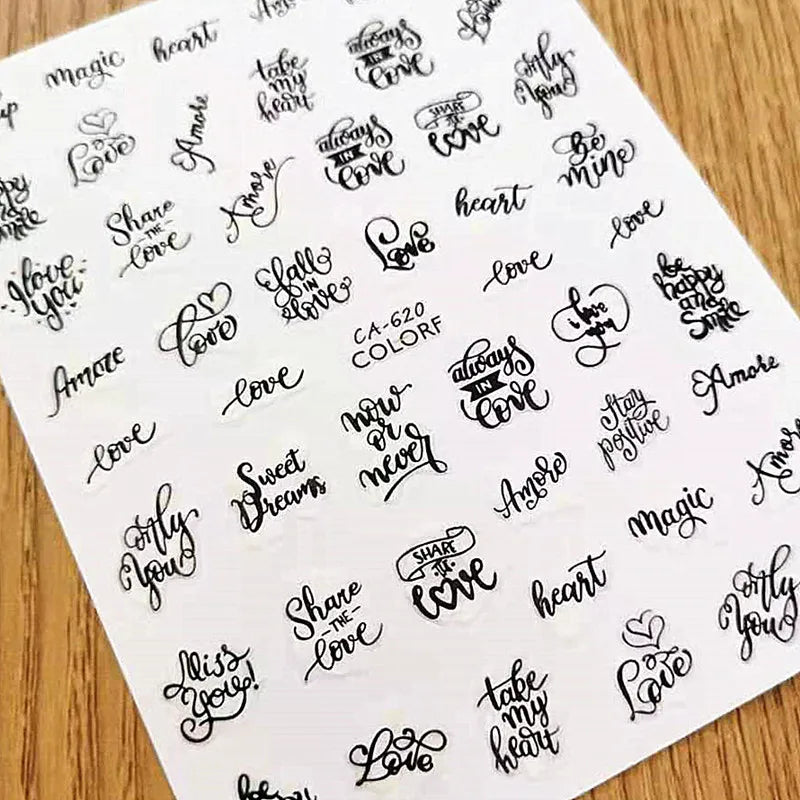 magic
heart
take
my
heart
always
IN
love
Love
Amore
always
IN
love
SHARE
THE
LOVE
only
You
Share
THE
love
Amore
Love
heart
Be
mine
I love
you
Love
fall
IN
love
love
love
CA-620
COLORF
Amore
love
always
IN
love
i love
you
be
happy
and
Smile
love
now
or
never
Stay
positive
Amore
Sweet
Dreams
Amore
Amore
only
You
SHARE
THE
LOVE
heart
magic
Share
THE
love
only
You
Miss
You!
take
my
heart
Love
Love